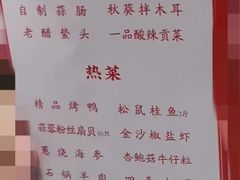 自制蒜肠 秋葵拌木耳
老醋蛰头 一品酸辣贡菜
热菜
精品烤鸭 松鼠桂鱼2斤
蒜蓉粉丝扇贝10只 金沙椒盐虾
葱烧海参 杏鲍菇牛仔粒
石锅羊肉